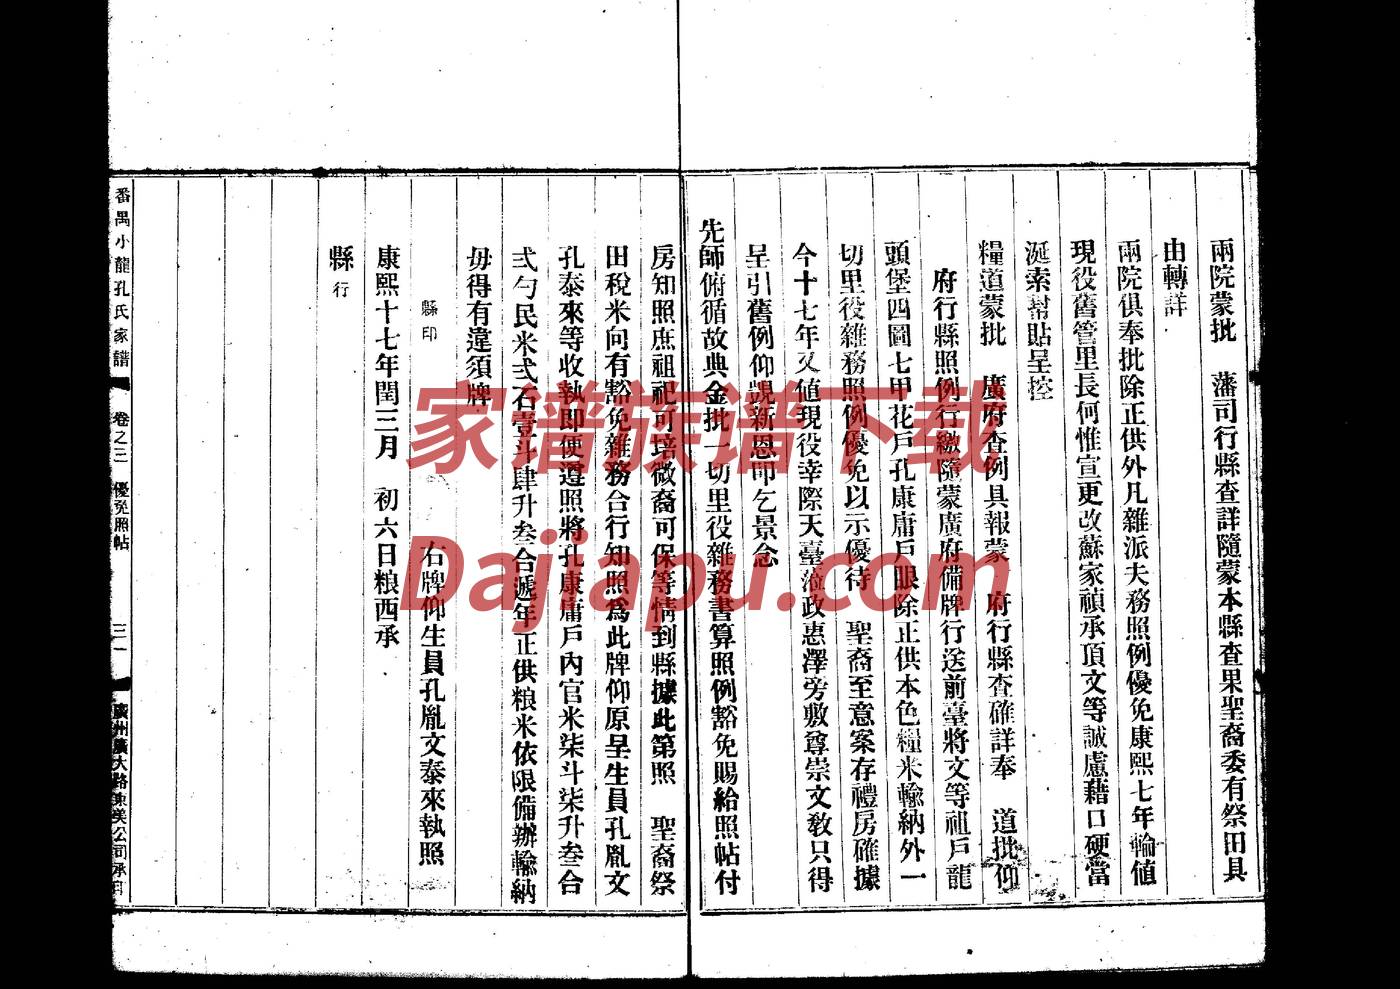 兩院蒙批　藩司行縣查詳隨蒙本縣查果聖裔委有祭田具
由轉詳
兩院俱奉批除正供外凡雜派夫務照例優免康熙七年輪值
現役舊管里長何惟宣更改蘇家禎承頂文等誠慮藉口硬當
涎索幫貼呈控
糧道蒙批　廣府查例具報蒙　府行縣查確詳奉　道批仰
府行縣照例行繳隨蒙廣府備牌行送前臺將文等祖戶龍
頭堡四圖七甲花戶孔康庸戶眼除正供本色糧米輸納外一
切里役雜務照例優免以示優待　聖裔至意案存禮房確據
今十七年又值現役幸際天臺蒞政惠澤旁敷尊崇文教只得
呈引舊例仰覬新恩叩乞景念
先師俯循故典金批一切里役雜務書算照例豁免賜給照帖付
房知照庶祖祀可培微裔可保等情到縣據此第照　聖裔祭
田稅米向有豁免雜務合行知照爲此牌仰原呈生員孔胤文
孔泰來等收執即便遵照將孔康庸戶內官米柒斗柒升叁合
弍勺民米弍石壹斗肆升叁合遞年正供粮米依限備辦輸納
毋得有違須牌
縣印　右牌仰生員孔胤文泰來執照
康熙十七年閏三月　初六日粮西承
縣行
番禺小龍孔氏家譜　卷之三　優免照帖　三一　廣州廣大路東美公司承印
家谱族谱下载
Dajiapu.com